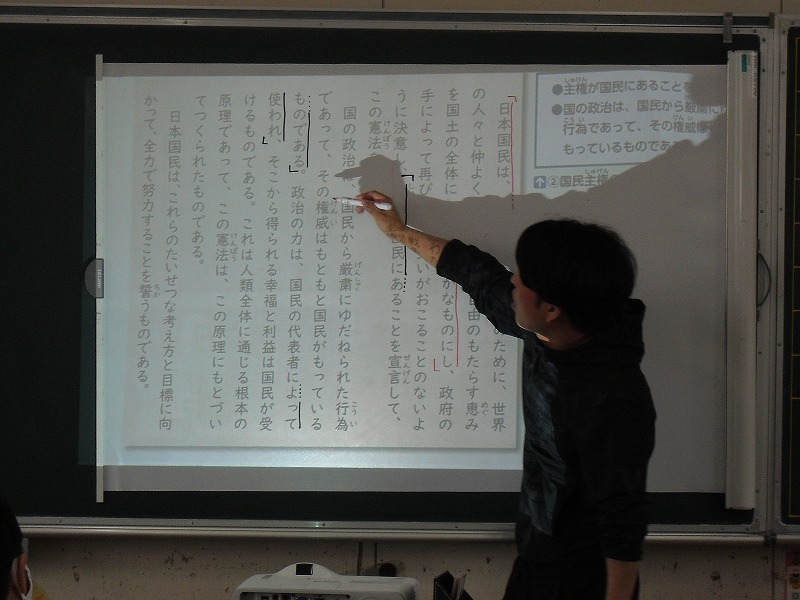 ●主権が国民にあることを
●国の政治は、国民から厳粛に
行為であって、その権威
もっているものであ
②国民主権
「日本国民は、
のために、世界
の人々と仲よく
自由のもたらす恵み
を国土の全体に
かなものにし、政府の
手によって再び
いがおこることのないよ
うに決意し、
国民にあることを宣言して、
この憲法を
国の政治は、国民から厳粛にゆだねられた行為
であって、その権威はもともと国民がもっている
ものである。政治の力は、国民の代表者によって
使われ、そこから得られる幸福と利益は国民が受
けるものである。これは人類全体に通じる根本の
原理であって、この憲法は、この原理にもとづい
てつくられたものである。
日本国民は、これらのたいせつな考え方と目標に向
かって、全力で努力することを誓うものである。